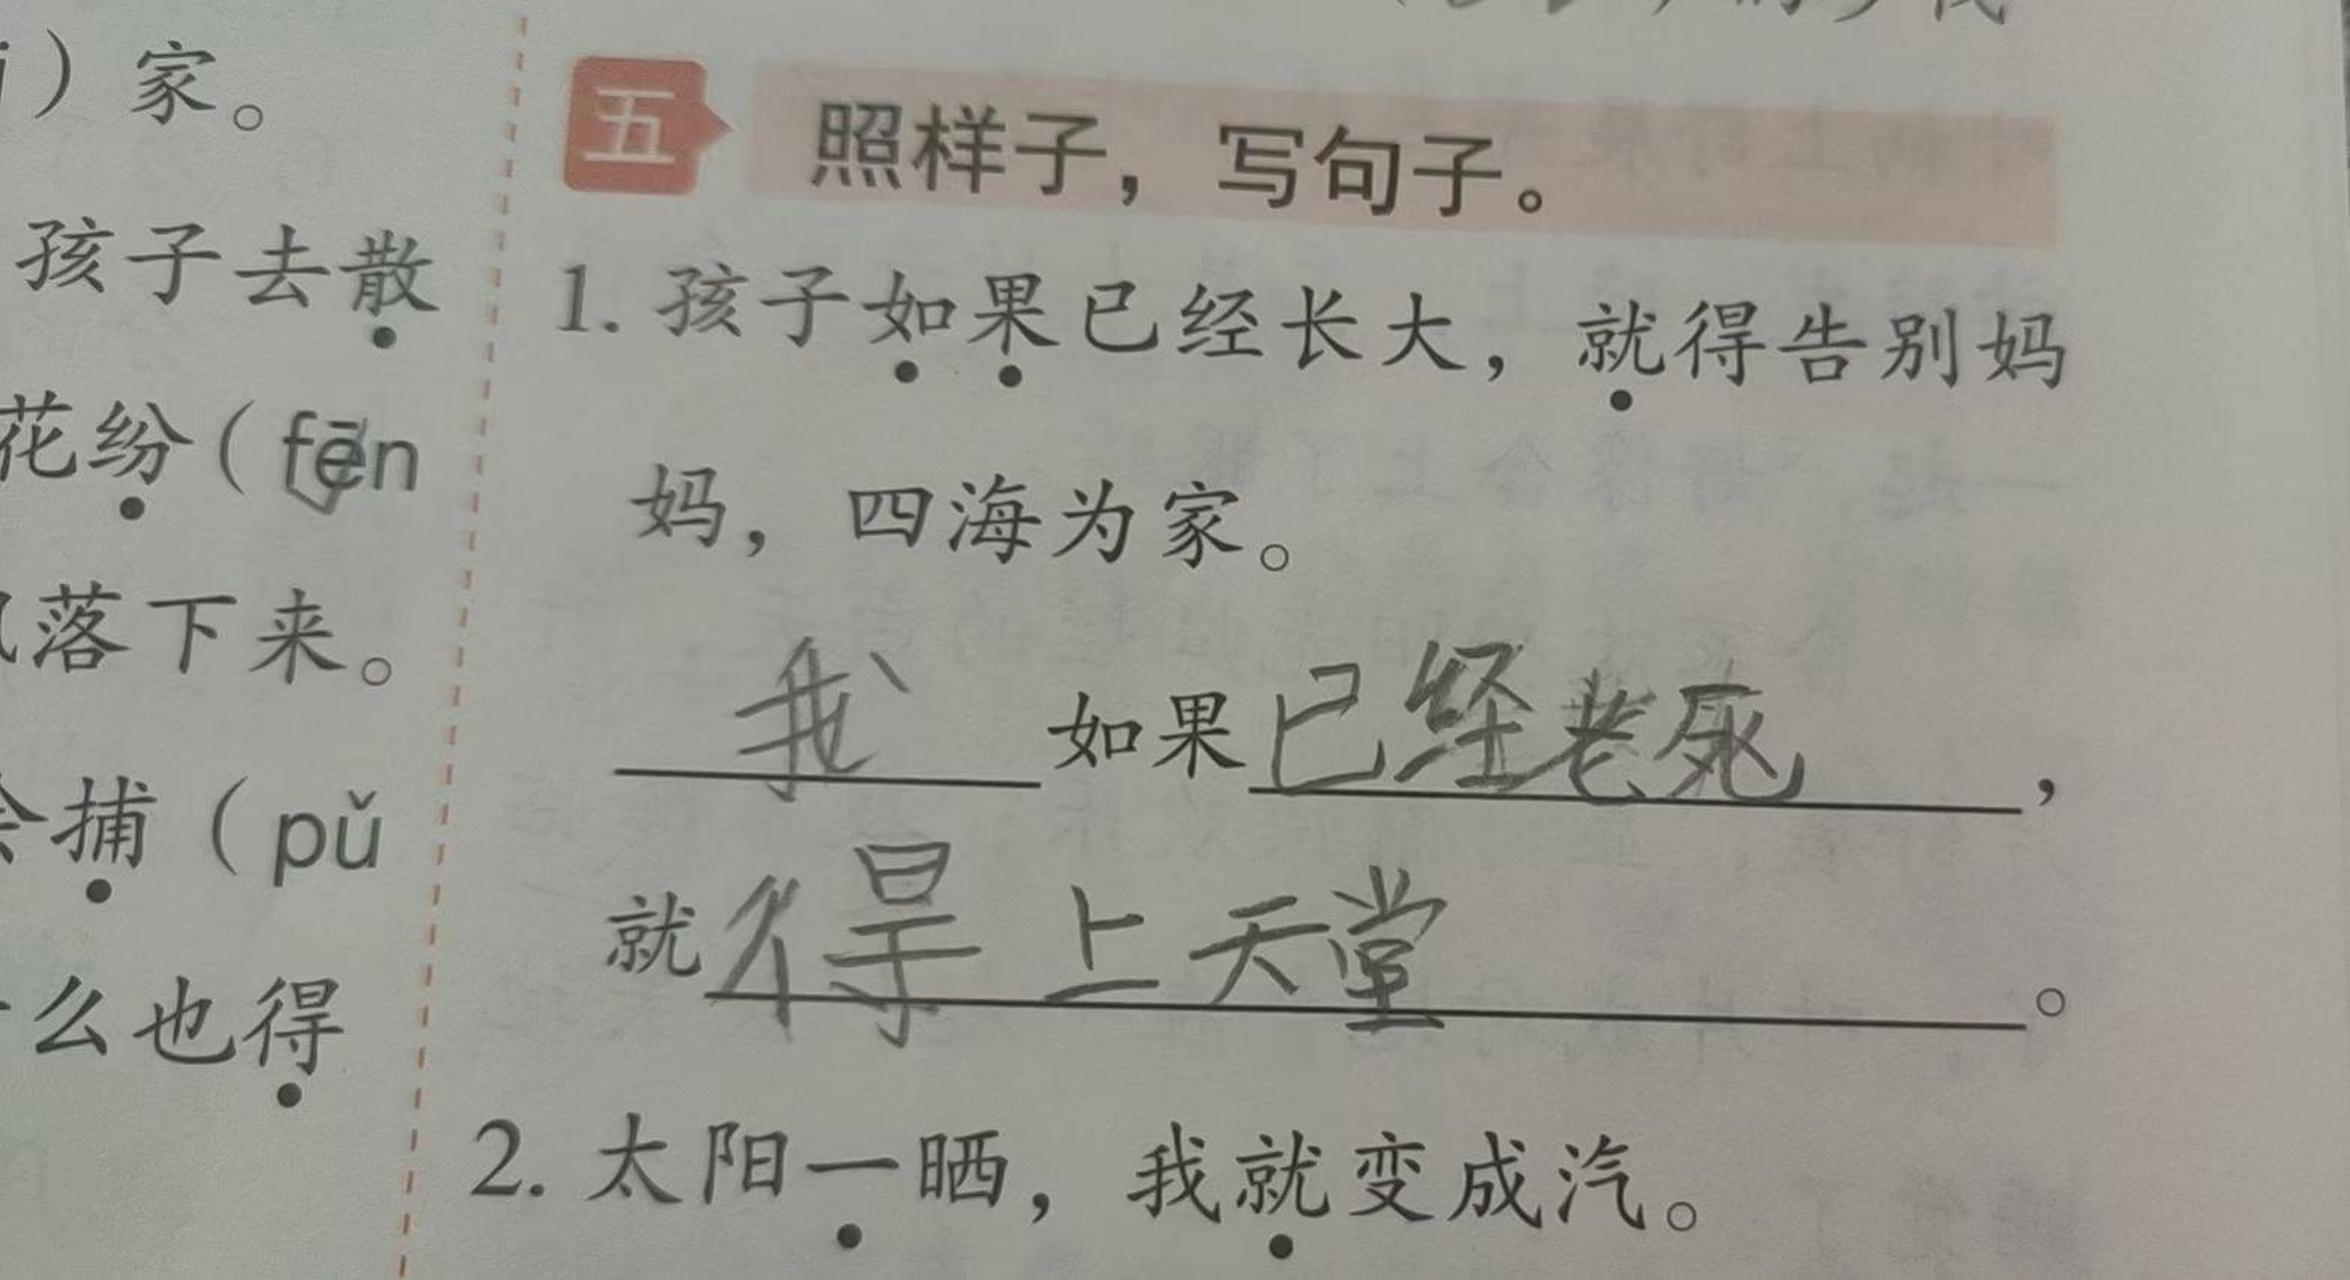 ）家。
孩子去散
花纷（fēn
落下来。
捕（pǔ
么也得
五 照样子，写句子。
1. 孩子如果已经长大，就得告别妈
妈，四海为家。
我如果已经老死，
就得上天堂。
2. 太阳一晒，我就变成汽。